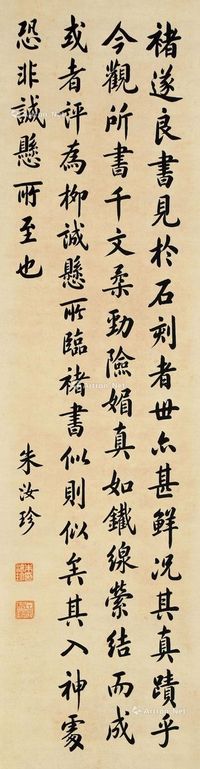 褚遂良書見於石刻者世亦甚鮮況其真蹟乎
今觀所書千文柔勁險媚真如鐵線縈結而成
或者評為柳誠懸所臨褚書似則似矣其入神處
恐非誠懸所至也
朱汝珍